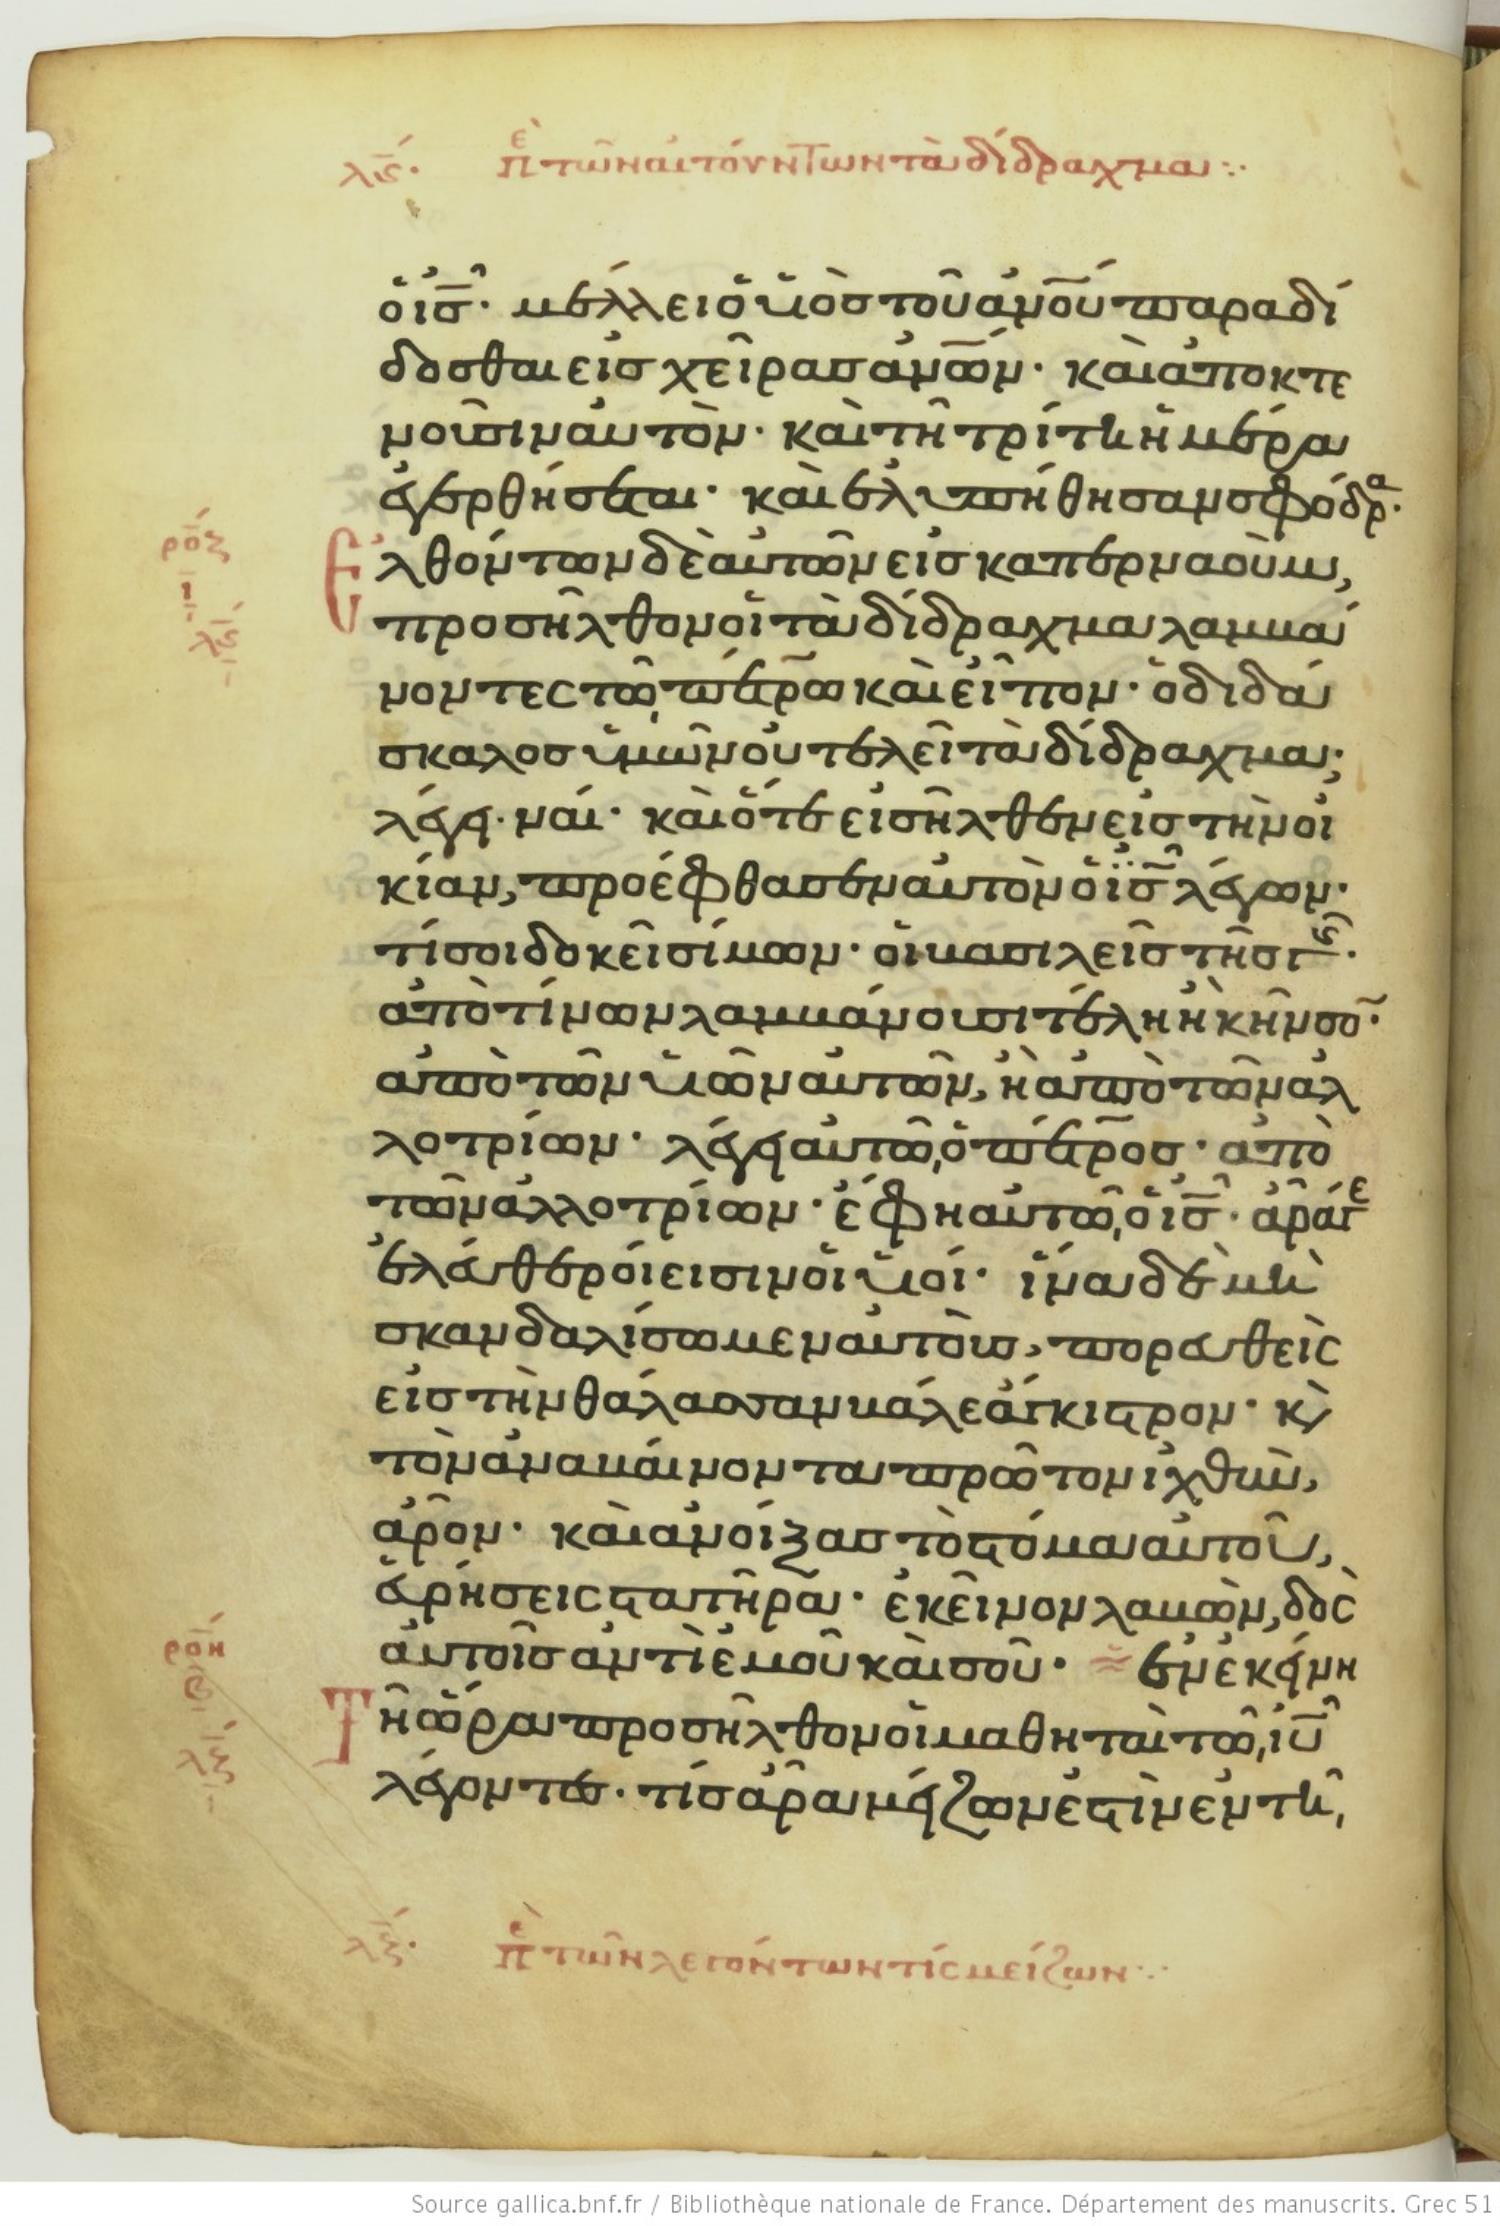 λϛ́· πὲ τῶν αἰτούντων τὰ δίδραχμα⁘
ὁ ἰς̅· μέλλει ὁ υἱὸς τοῦ ἀν̅ο̅υ̅ παραδί
δοσθαι εἰς χεῖρας ἀν̅ω̅ν̅· καὶ ἀποκτε
νοῦσιν αὐτὸν· καὶ τῆ τρίτη ἡμέρα
ἐγερθήσεται· καὶ ἐλυπήθησαν σφόδρα·
ροζ
ι
λϛ
Ἐλθόντων δὲ αὐτῶν εἰς καπερναοὺμ,
προσῆλθον οἱ τὰ δίδραχμα λαμβά
νοντες τῶ πέτρω καὶ εἶπον· ὁ διδά
σκαλος ὑμῶν οὐ τελεῖ τὰ δίδραχμα;
λέγει· ναί· καὶ ὅτε εἰσῆλθεν εἰς τὴν οἰ
κίαν, προέφθασεν αὐτὸν ὁ ἰς̅ λέγων·
τί σοι δοκεῖ σίμων· οἱ βασιλεῖς τῆς γῆς·
ἀπὸ τίνων λαμβάνουσι τέλη ἢ κῆνσον·
ἀπὸ τῶν υἱῶν αὐτῶν, ἢ ἀπὸ τῶν ἀλ
λοτρίων· λέγει αὐτῶ ὁ πέτρος· ἀπὸ
τῶν ἀλλοτρίων· ἔφη αὐτῶ ὁ ἰς̅· ἄράγε
ἐλεύθεροί εισιν οἱ υἱοί· ἵνα δὲ μὴ
σκανδαλίσωμεν αὐτοὺς, πορευθεὶς
εἰς τὴν θάλασσαν βάλε ἄγκιστρον· κὶ
τὸν ἀναβάινοντα πρῶτον ἰχθὺν,
ἆρον· καὶ ἀνοίξας τὸ στόμα αὐτοῦ,
εὑρήσεις στατῆρα· ἐκεῖνον λαβὼν, δὸς
αὐτοῖς ἀντὶ ἐμοῦ καὶ σοῦ· ἐν ἐκείνη
ροη
λζ
Τῆ ὥρα προσῆλθον οἱ μαθηταὶ τῶ ἰῦ̅
λέγοντες· τίς ἄρα μείζων ἐστὶν ἐν τῆ
λζ́· πὲ τῶν λεγόντων τίς μείζων⁘
Source gallica.bnf.fr / Bibliothèque nationale de France. Département des manuscrits. Grec 51